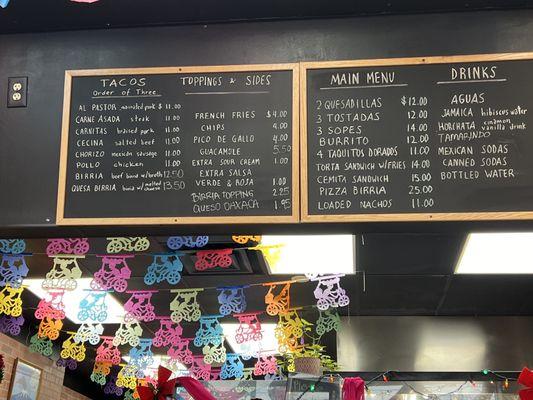 TACOS
Order of Three
AL PASTOR marinated pork $11.00
CARNE ASADA steak 11.00
CARNITAS braised pork 11.00
CECINA salted beef 11.00
CHORIZO mexican sausage 11.00
POLLO chicken 11.00
BIRRIA beef birria w/broth 12.50
QUESA BIRRIA birria w/melted cheese 13.50
TOPPINGS & SIDES
FRENCH FRIES $4.00
CHIPS 4.00
PICO DE GALLO 4.00
GUACAMOLE 5.50
EXTRA SOUR CREAM 1.00
EXTRA SALSA
VERDE & ROJA 1.00
BIRRIA TOPPING 2.25
QUESO OAXACA 1.95
MAIN MENU
2 QUESADILLAS $12.00
3 TOSTADAS 12.00
3 SOPES 14.00
BURRITO 12.00
4 TAQUITOS DORADOS 11.00
TORTA SANDWICH W/FRIES 14.00
CEMITA SANDWICH 15.00
PIZZA BIRRIA 25.00
LOADED NACHOS 11.00
DRINKS
AGUAS
JAMAICA hibiscus water
HORCHATA cinnamon vanilla drink
TAMARINDO
MEXICAN SODAS
CANNED SODAS
BOTTLED WATER